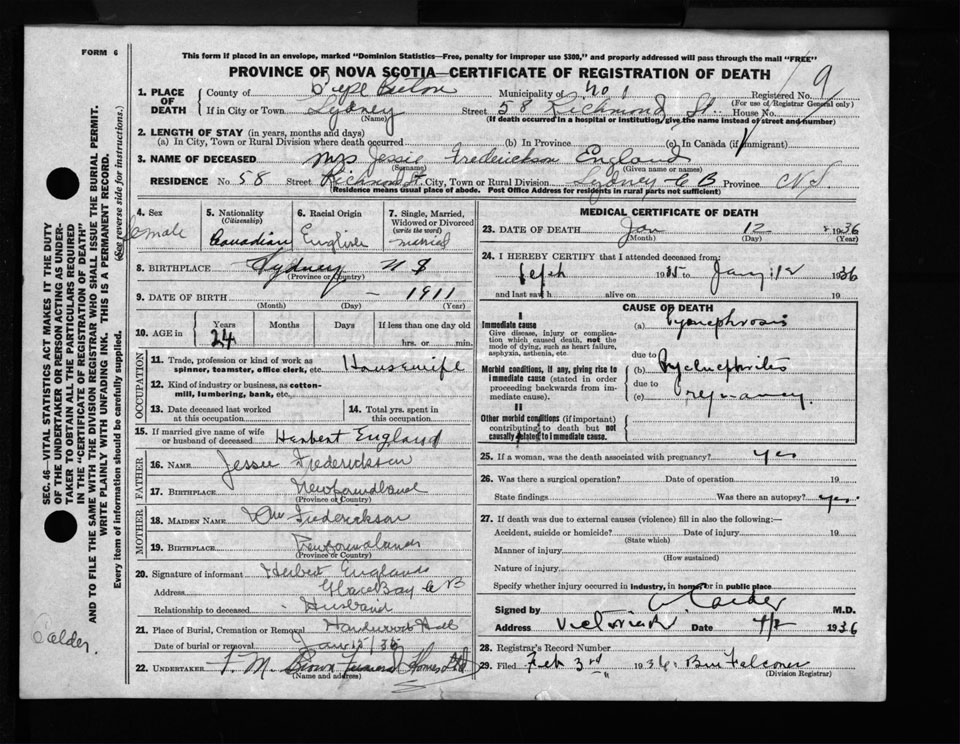 FORM 6
This form if placed in an envelope, marked "Dominion Statistics—Free, penalty for improper use $300," and properly addressed will pass through the mail "FREE"
PROVINCE OF NOVA SCOTIA—CERTIFICATE OF REGISTRATION OF DEATH
9
1. PLACE OF DEATH
County of Cape Breton Municipality of No 1 Registered No.
(For use of Registrar General only)
If in City or Town Sydney Street 58 Richmond St. House No.
(Name) (If death occurred in a hospital or institution, give the name instead of street and number)
2. LENGTH OF STAY (in years, months and days)
(a) In City, Town or Rural Division where death occurred (b) In Province (c) In Canada (if immigrant)
3. NAME OF DECEASED Mrs Jessie Frederickson England
(Surname) (Given name or names)
RESIDENCE No 58 Street Richmond St. City, Town or Rural Division Sydney C B Province N.S.
(Residence means usual place of abode. Post Office Address for residents in rural parts not sufficient)
4. Sex
female
5. Nationality
(Citizenship)
Canadian
6. Racial Origin
English
7. Single, Married, Widowed or Divorced
(write the word)
married
8. BIRTHPLACE Sydney N S
(Province or Country)
9. DATE OF BIRTH — 1911
(Month) (Day) (Year)
10. AGE in Years Months Days If less than one day old
24 hrs. or min.
OCCUPATION
11. Trade, profession or kind of work as spinner, teamster, office clerk, etc. Housewife
12. Kind of industry or business, as cotton-mill, lumbering, bank, etc.
13. Date deceased last worked at this occupation
14. Total yrs. spent in this occupation
15. If married give name of wife or husband of deceased Herbert England
FATHER
16. Name Jessee Frederickson
17. Birthplace Newfoundland
(Province or Country)
MOTHER
18. Maiden Name Frederickson
19. Birthplace Newfoundland
(Province or Country)
20. Signature of informant Herbert England
Address Glace Bay C B
Relationship to deceased Husband
21. Place of Burial, Cremation or Removal Hardwood Hill
Date of burial or removal Jan 15/36
22. UNDERTAKER T. M. Brown Funeral Homes Ltd
(Name and address)
MEDICAL CERTIFICATE OF DEATH
23. DATE OF DEATH Jan 12 1936
(Month) (Day) (Year)
24. I HEREBY CERTIFY that I attended deceased from:
Sept 1935 to Jany 12 1936
and last saw h alive on 19
CAUSE OF DEATH
I
Immediate cause
Give disease, injury or complication which caused death, not the mode of dying, such as heart failure, asphyxia, asthenia, etc.
(a) Pyonephrosis
due to
Morbid conditions, if any, giving rise to immediate cause (stated in order proceeding backwards from immediate cause).
(b) Pyelnephritis
due to
(c) Pregnancy.
II
Other morbid conditions (if important) contributing to death but not causally related to immediate cause.
25. If a woman, was the death associated with pregnancy? yes
26. Was there a surgical operation? Date of operation 19
State findings Was there an autopsy? yes.
27. If death was due to external causes (violence) fill in also the following:—
Accident, suicide or homicide? Date of injury 19
(State which)
Manner of injury
(How sustained)
Nature of injury
Specify whether injury occurred in industry, in home, or in public place
Signed by Calder M.D.
Address Victoria Rd Date 1936
28. Registrar's Record Number
29. Filed Feb 3rd 1936 Falconer
(Division Registrar)
SEC. 46—VITAL STATISTICS ACT MAKES IT THE DUTY OF THE UNDERTAKER OR PERSON ACTING AS UNDERTAKER TO OBTAIN ALL THE PARTICULARS REQUIRED IN THE "CERTIFICATE OF REGISTRATION OF DEATH" AND TO FILE THE SAME WITH THE DIVISION REGISTRAR WHO SHALL ISSUE THE BURIAL PERMIT.
WRITE PLAINLY WITH UNFADING INK. THIS IS A PERMANENT RECORD.
Every item of information should be carefully supplied. (See reverse side for instructions.)
Calder.